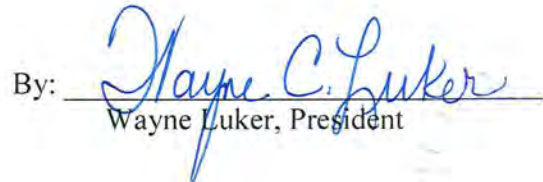 By: Wayne C. Luker
Wayne Luker, President